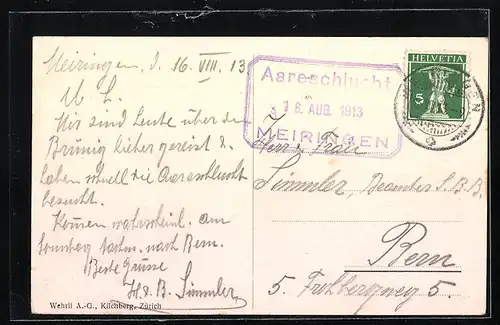 Meiringen, d. 16. VIII. 13
M. L.
Wir sind heute über den
Brünig hieher gereist &
haben schnell die Aareschlucht
besucht.
Kommen wahrscheinl. am
Sonntag nachm. nach Bern.
Beste Grüsse
H. & B. Simmler
Wehrli A.-G., Kilchberg, Zürich
Aareschlucht
16. AUG. 1913
MEIRINGEN
HELVETIA
5
Herr & Frau
Simmler, Beamter S.B.B.
Bern
5. Freiburgweg 5.